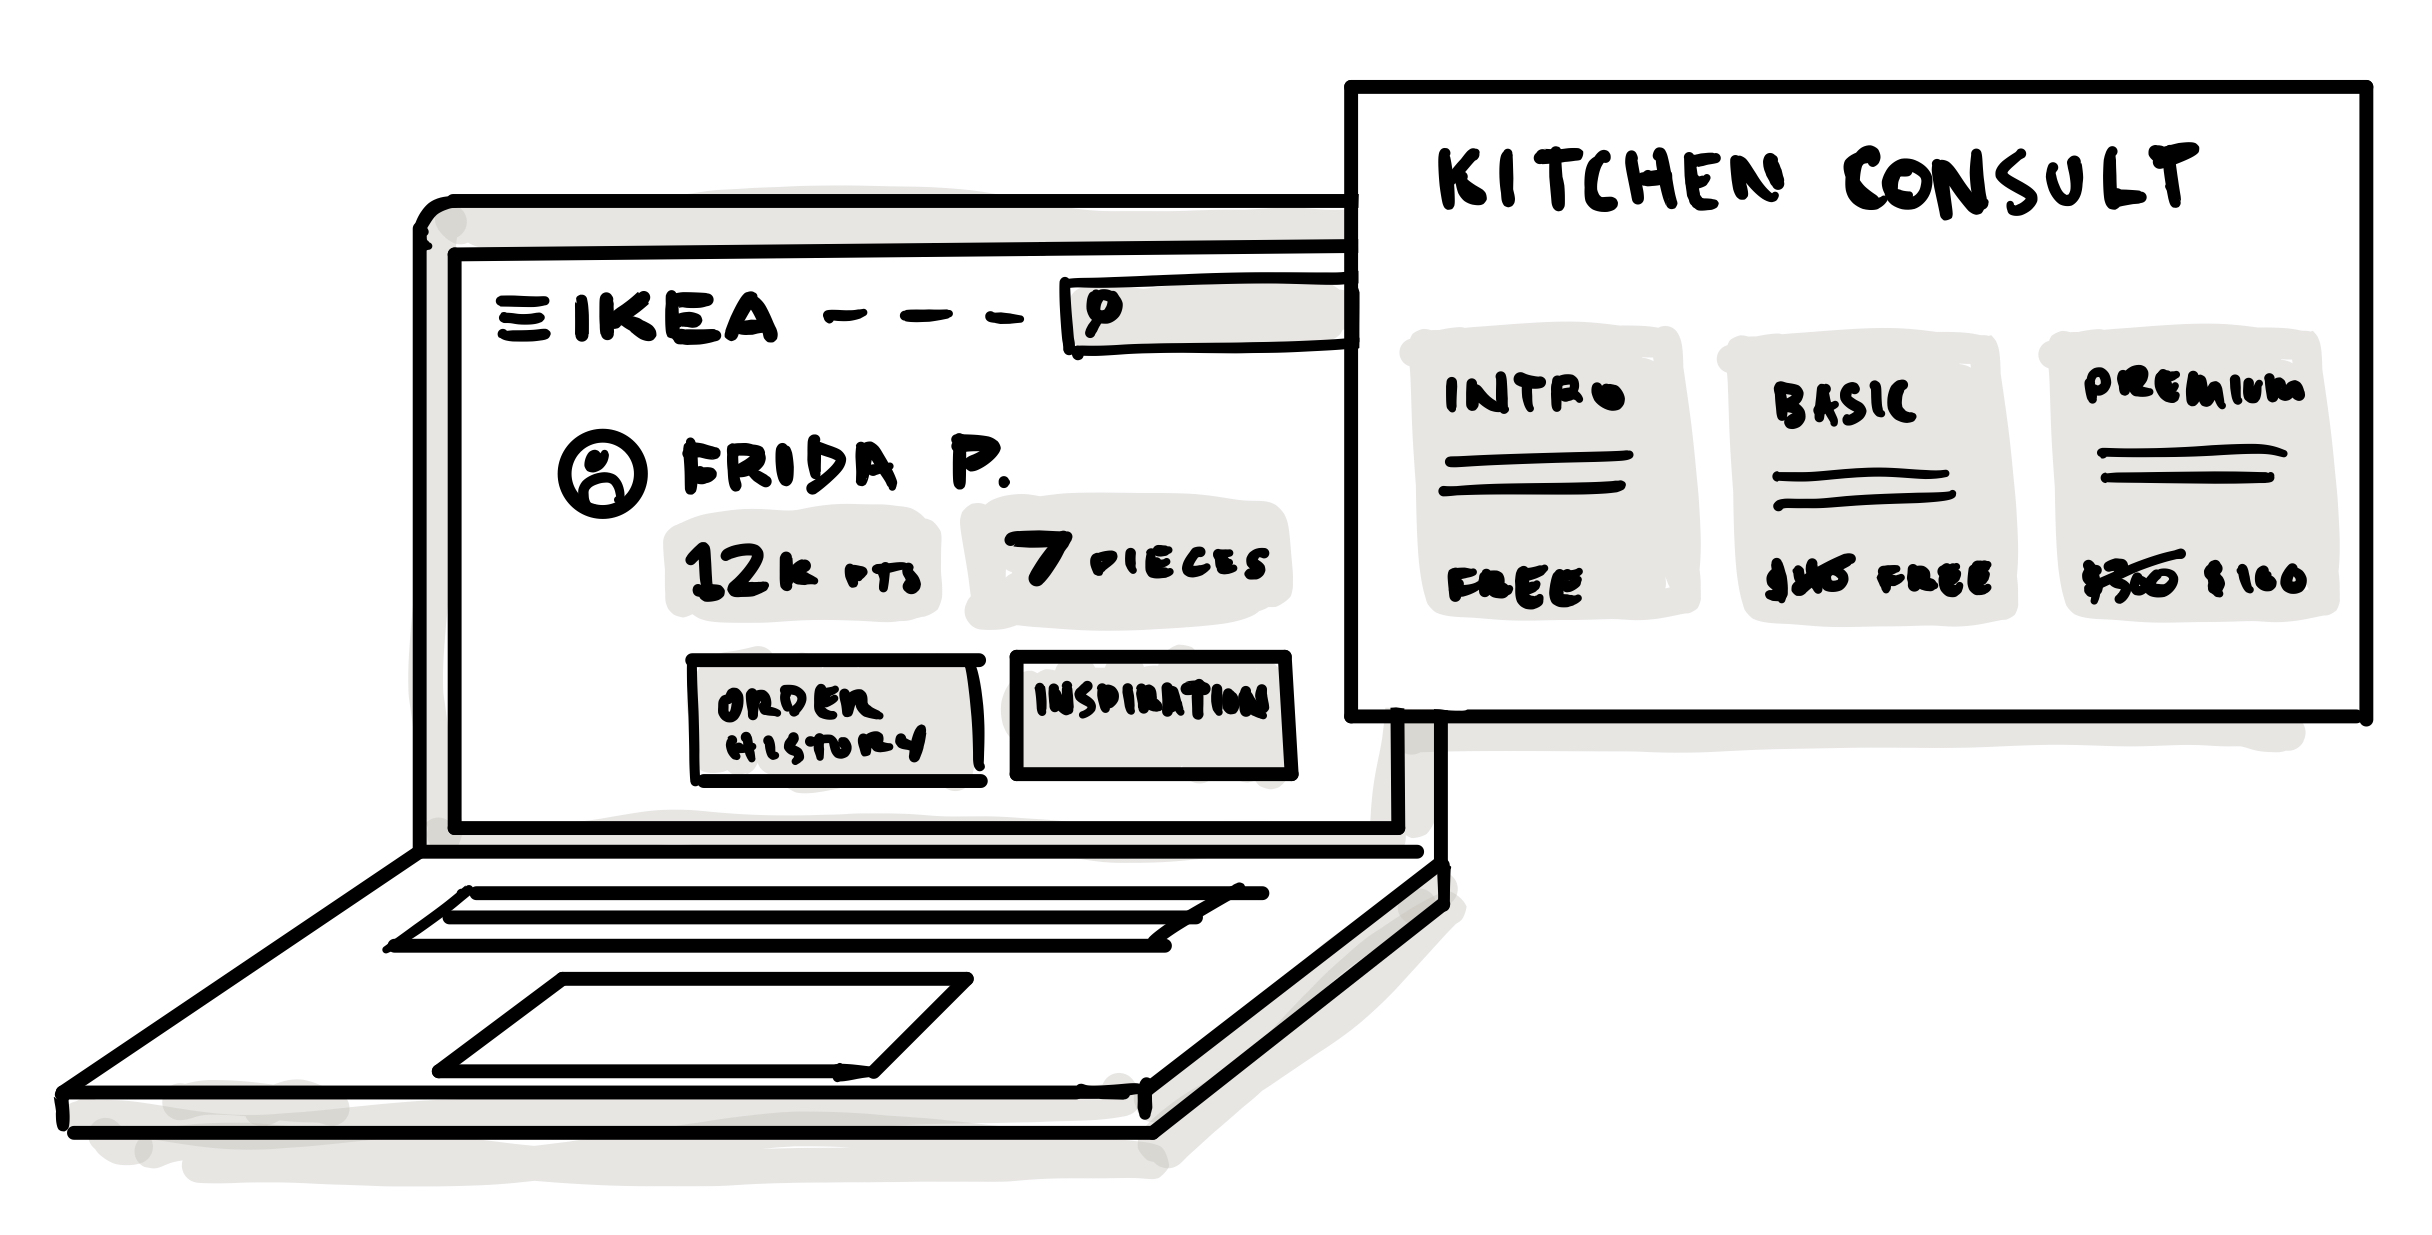 IKEA
FRIDA P.
12K PTS
7 PIECES
ORDER
HISTORY
INSPIRATION
KITCHEN CONSULT
INTRO
FREE
BASIC
FREE
PREMIUM
$300 $160